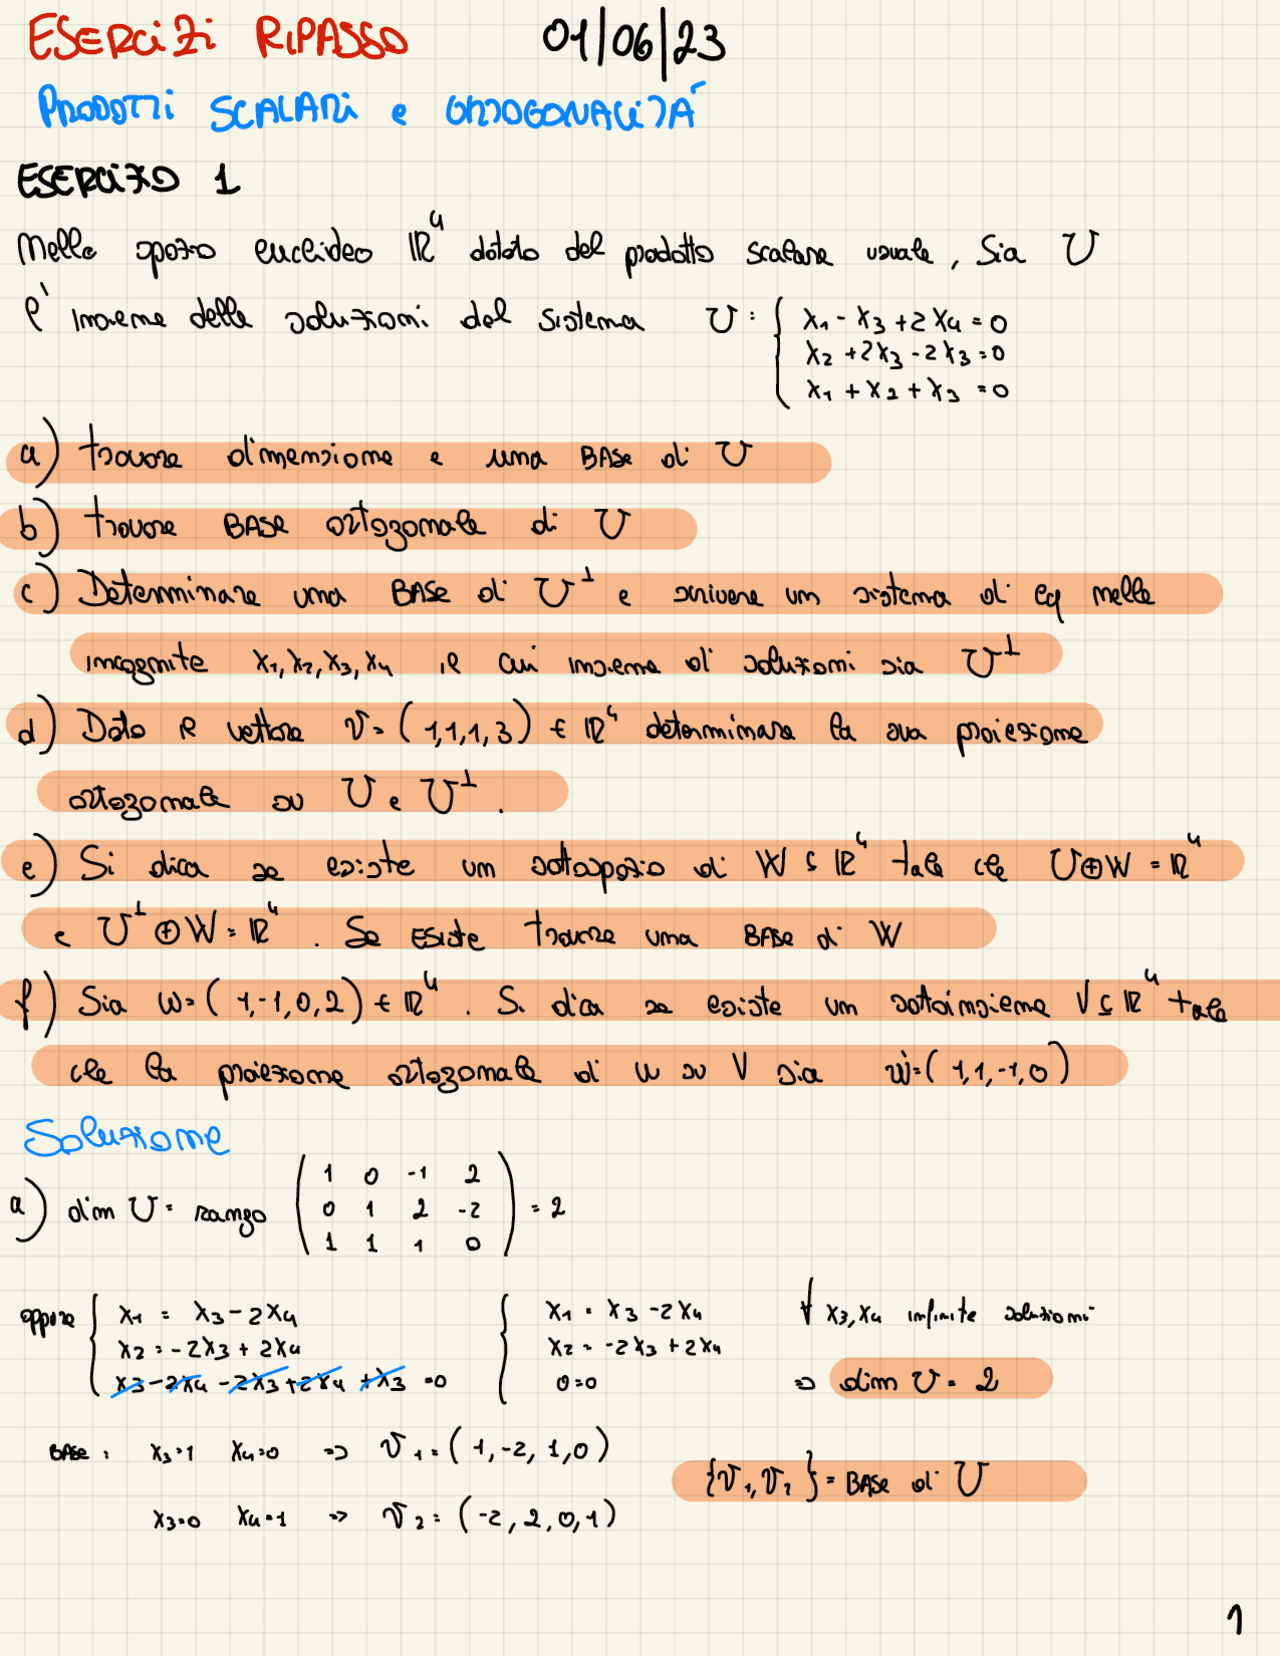 ESERCIZI RIPASSO 01/06/23
PRODOTTI SCALARI e ORTOGONALITÀ
ESERCIZIO 1
Nello spazio euclideo ℝ⁴ dotato del prodotto scalare usuale, sia U
l'insieme delle soluzioni del sistema U: { x₁ - x₃ + 2x₄ = 0
x₂ + 2x₃ - 2x₃ = 0
x₁ + x₂ + x₃ = 0
a) trovare dimensione e una BASE di U
b) trovare BASE ortogonale di U
c) Determinare una BASE di U⊥ e scrivere un sistema di eq nelle
incognite x₁, x₂, x₃, x₄ il cui insieme di soluzioni sia U⊥
d) Dato il vettore v = (1,1,1,3) ∈ ℝ⁴ determinare la sua proiezione
ortogonale su U e U⊥.
e) Si dica se esiste un sottospazio di W ⊆ ℝ⁴ tale che U⊕W = ℝ⁴
e U⊥⊕W = ℝ⁴. Se esiste trovare una BASE di W
f) Sia w = (1,-1,0,2) ∈ ℝ⁴. Si dica se esiste un sottoinsieme V ⊆ ℝ⁴ tale
che la proiezione ortogonale di w su V sia w' = (1,1,-1,0)
Soluzione
a) dim U = rango ( 1 0 -1 2
0 1 2 -2
1 1 1 0 ) = 2
oppure { x₁ = x₃ - 2x₄ { x₁ = x₃ - 2x₄ ∀ x₃, x₄ infinite soluzioni
x₂ = -2x₃ + 2x₄ x₂ = -2x₃ + 2x₄
x₃ - 2x₄ - 2x₃ + 2x₄ + x₃ = 0 0 = 0 ⇒ dim U = 2
BASE: x₃=1 x₄=0 ⇒ v₁ = (1,-2,1,0)
{v₁, v₂} = BASE di U
x₃=0 x₄=1 ⇒ v₂ = (-2,2,0,1)
1